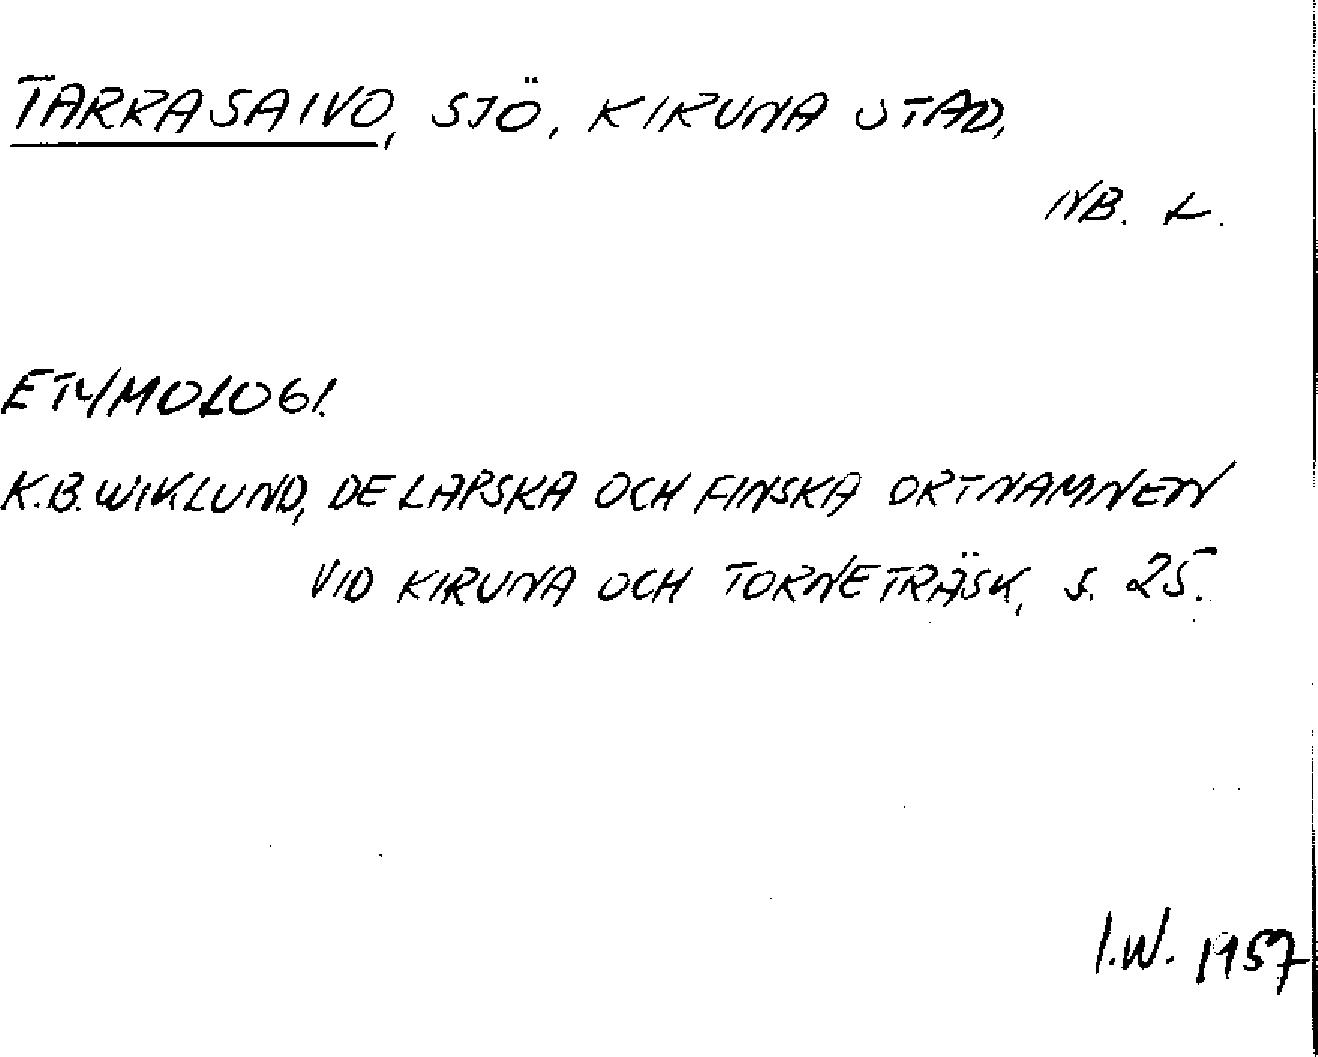 TARRASAIVO, SJÖ, KIRUNA STAD,
NB. L.
ETYMOLOGI.
K.B. WIKLUND, DE LAPSKA OCH FINSKA ORTNAMNEN
VID KIRUNA OCH TORNETRÄSK, S. 25.
I.W. 1957